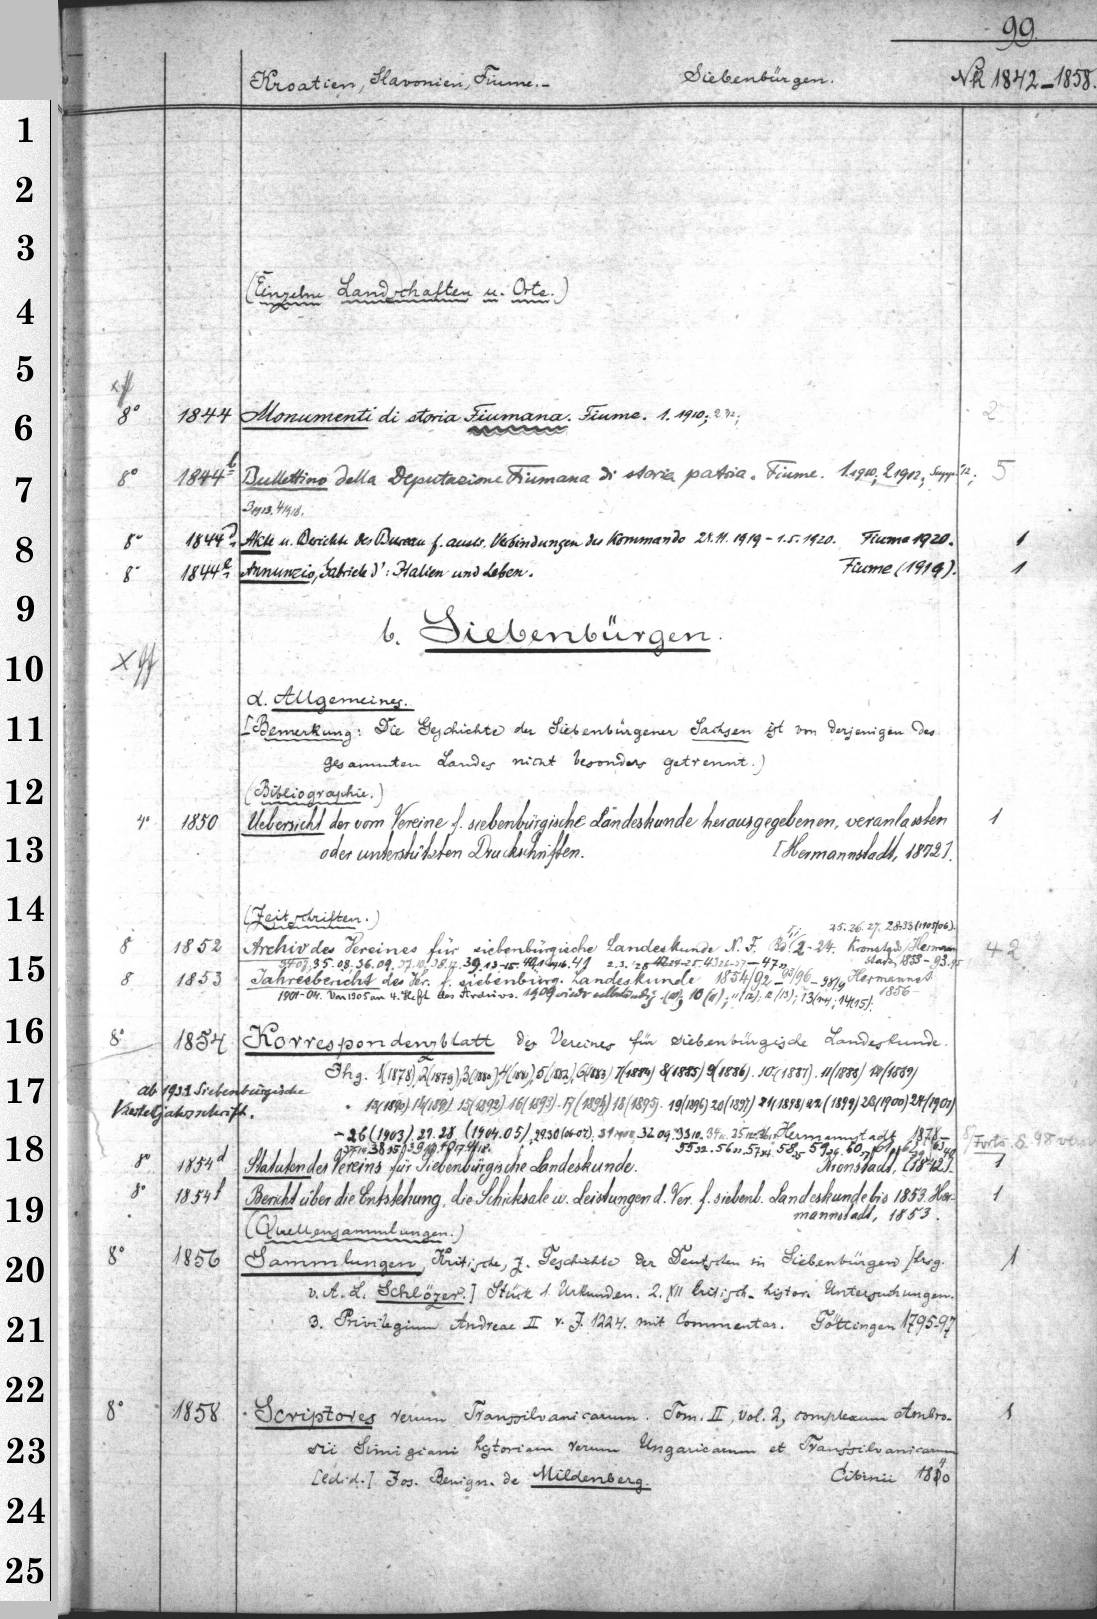 99.
Kroatien, Slavonien, Fiume.- Siebenbürgen. NR 1842-1858.
1
2
3
(Einzelne Landschaften u. Orte.)
4
5
6
8° 1844 Monumenti di storia Fiumana. Fiume. 1. 1910; 2
7
8° 1844b Bullettino della Deputazione Fiumana di storia patria. Fiume. 1.1910; 2.1912, Suppl. 12; 5
3 1913. 4 1918.
8
8° 1844 Akte u. Berichte des Bureau f. ausw. Verbindungen des Kommando 28.11.1919-1.5.1920. Fiume 1920. 1
8° 1844e Annunzio, Gabriele d': Italien und Leben. Fiume (1919). 1
9
b. Siebenbürgen.
10
α. Allgemeines.
11
[Bemerkung: Die Geschichte der Siebenbürgener Sachsen ist von derjenigen des
gesammten Landes nicht besonders getrennt.)
12
(Bibliographie.)
4° 1850 Uebersicht der vom Vereine f. siebenbürgische Landeskunde herausgegebenen, veranlassten 1
13
oder unterstützten Druckschriften. [Hermannstadt, 1872].
14
(Zeitschriften.)
25. 26. 27. 28-33 (1905/06).
8 1852 Archiv des Vereines für siebenbürgische Landeskunde N. F. 2-24. Kronstadt/Hermannstadt, 1853-93. 42
15
34 07, 35. 08. 36. 09.
8 1853 Jahresbericht des Ver. f. siebenbürg. Landeskunde 1854/92 - 95/96 - 98/9 Hermannst.
1901-04. Von 1905 an 4. Heft des Archivs. 1909 wieder selbständig 1856-
16
8° 1854 Korrespondenzblatt des Vereines für siebenbürgische Landeskunde.
17
Jhg. 1(1878), 2(1879), 3(1880), 4(1881), 5(1882), 6(1883) 7(1884) 8(1885) 9(1886). 10.(1887). 11(1888) 12(1889)
ab 1931 Siebenbürgische
Vierteljahrsschrift.
13(1890) 14(1891) 15(1892) 16(1893). 17(1894) 18(1895). 19(1896) 20(1897) 21(1898) 22(1899) 23(1900) 24(1901)
18
- 26 (1903) 27. 28. (1904.05), 29.30 (06-07). Hermannstadt 1878-
8° 1854d Statuten des Vereins für Siebenbürgische Landeskunde. Kronstadt, [1842]. 1
19
8° 1854f Bericht über die Entstehung, die Schicksale u. Leistungen d. Ver. f. siebenb. Landeskunde bis 1853. Her- 1
mannstadt, 1853.
(Quellensammlungen.)
20
8° 1856 Sammlungen, Kritische, z. Geschichte der Deutschen in Siebenbürgen [hrsg. 1
v. A. L. Schlözer.] Stück 1. Urkunden. 2. XII kritisch-histor. Untersuchungen.
21
3. Privilegium Andreae II v. J. 1224. mit Commentar. Göttingen 1795-97
22
8° 1858 Scriptores rerum Transsilvanicarum. Tom. II, vol. 2, complexum Ambro- 1
23
sii Simigiani historiam rerum Ungaricarum et Transsilvanicarum
[edid.] Jos. Benign. de Mildenberg. Cibinii 1840
24
25